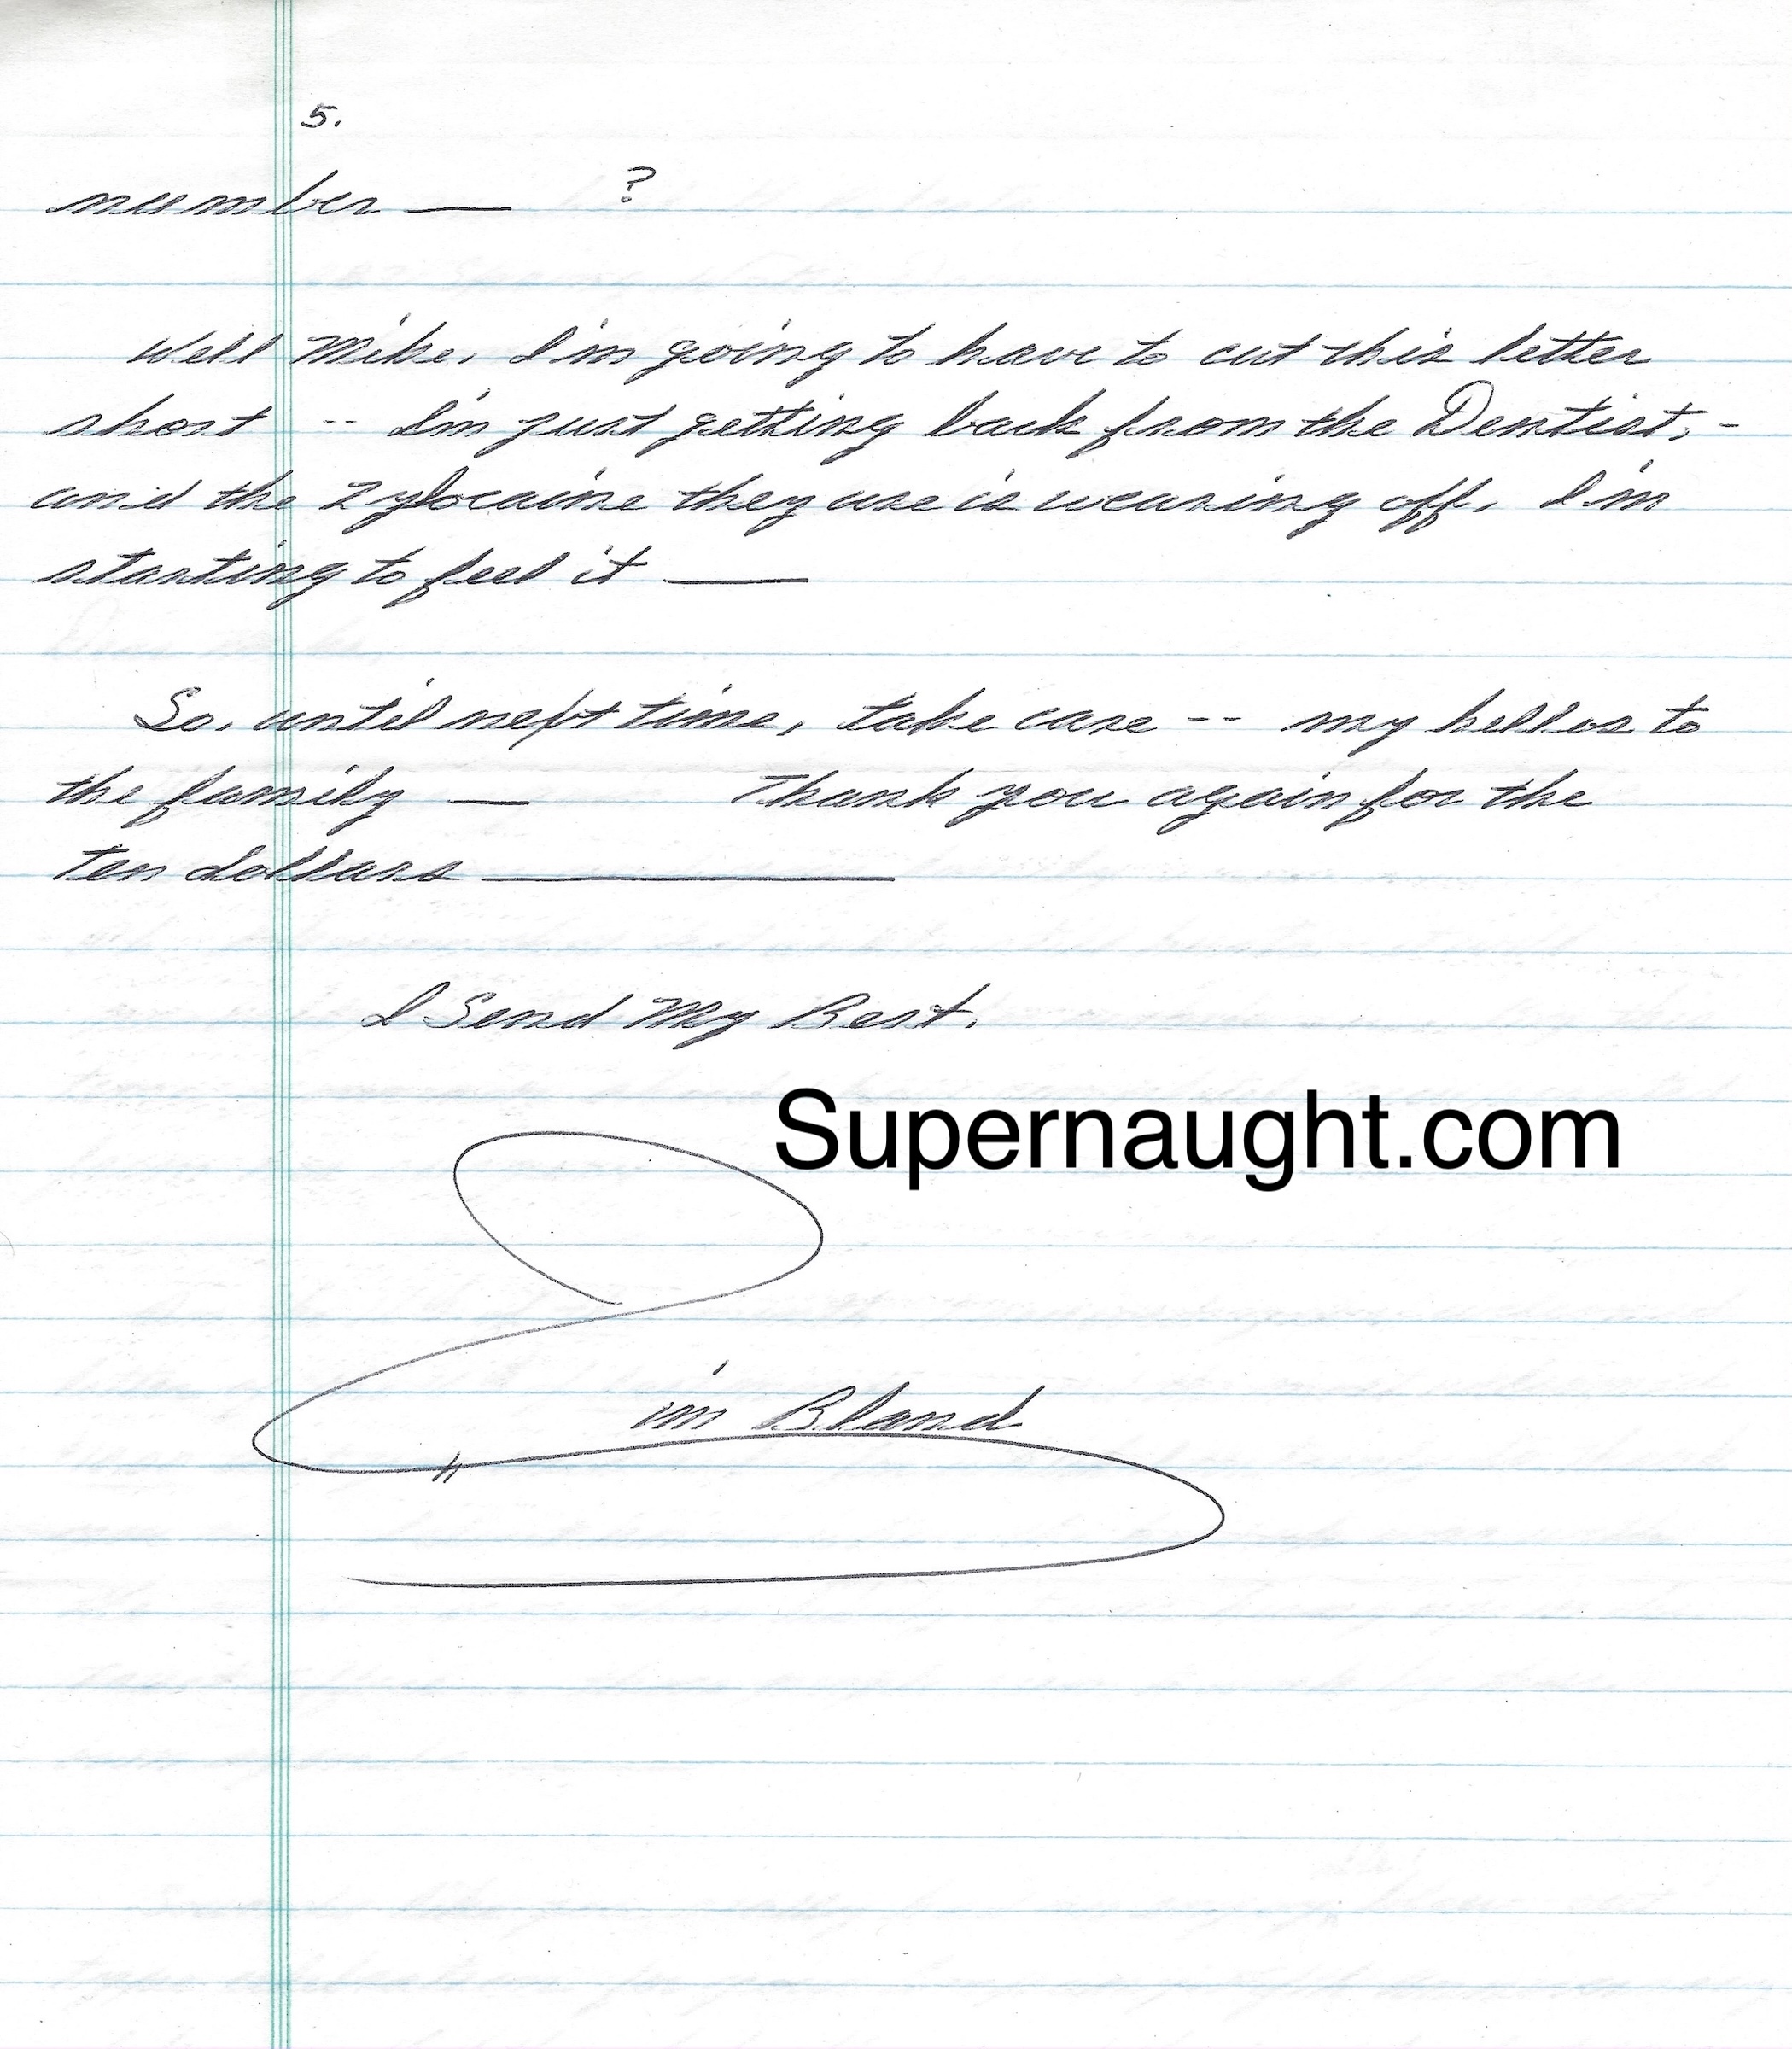 5.
number — ?
Well Mike, I'm going to have to cut this letter
short -- I'm just getting back from the Dentist, -
and the Zylocaine they use is wearing off, I'm
starting to feel it —
So, until next time, take care -- my hellos to
the family — Thank you again for the
ten dollars —
I Send My Best,
Supernaught.com
Jim Bland